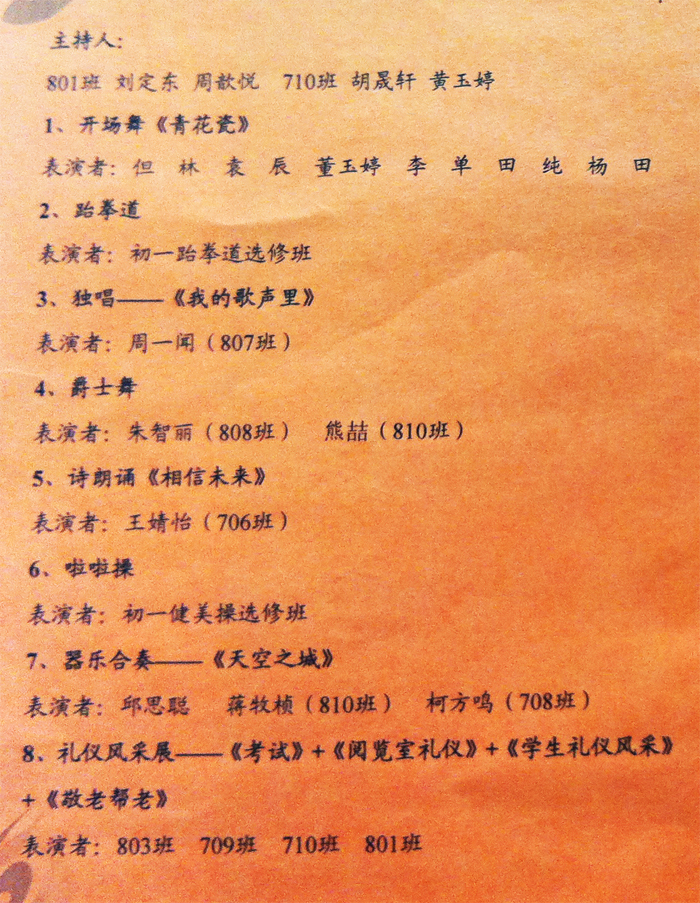 主持人：
801班 刘定东 周歆悦 710班 胡晟轩 黄玉婷
1、开场舞《青花瓷》
表演者：但 林 袁 辰 董玉婷 李 单 田 纯 杨 田
2、跆拳道
表演者：初一跆拳道选修班
3、独唱——《我的歌声里》
表演者：周一闻（807班）
4、爵士舞
表演者：朱智丽（808班） 熊喆（810班）
5、诗朗诵《相信未来》
表演者：王婧怡（706班）
6、啦啦操
表演者：初一健美操选修班
7、器乐合奏——《天空之城》
表演者：邱思聪 蒋牧桢（810班） 柯方鸣（708班）
8、礼仪风采展——《考试》+《阅览室礼仪》+《学生礼仪风采》
+《敬老帮老》
表演者：803班 709班 710班 801班